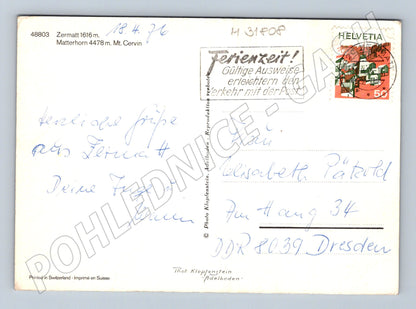 48803 Zermatt 1616 m.
Matterhorn 4478 m. Mt. Cervin
18.4.76
H 31808
Ferienzeit!
Gültige Ausweise
erleichtern den
Verkehr mit der Post
HELVETIA
50
herzliche Grüße
aus Zermatt
Deine
Frau
Elisabeth Pätzold
Am Hang 34
DDR 8039 Dresden
© Photo Klopfenstein, Adelboden. Reproduktion verboten
Printed in Switzerland - Imprimé en Suisse
Phot Klopfenstein
Adelboden
POHLEDNICE - GASH